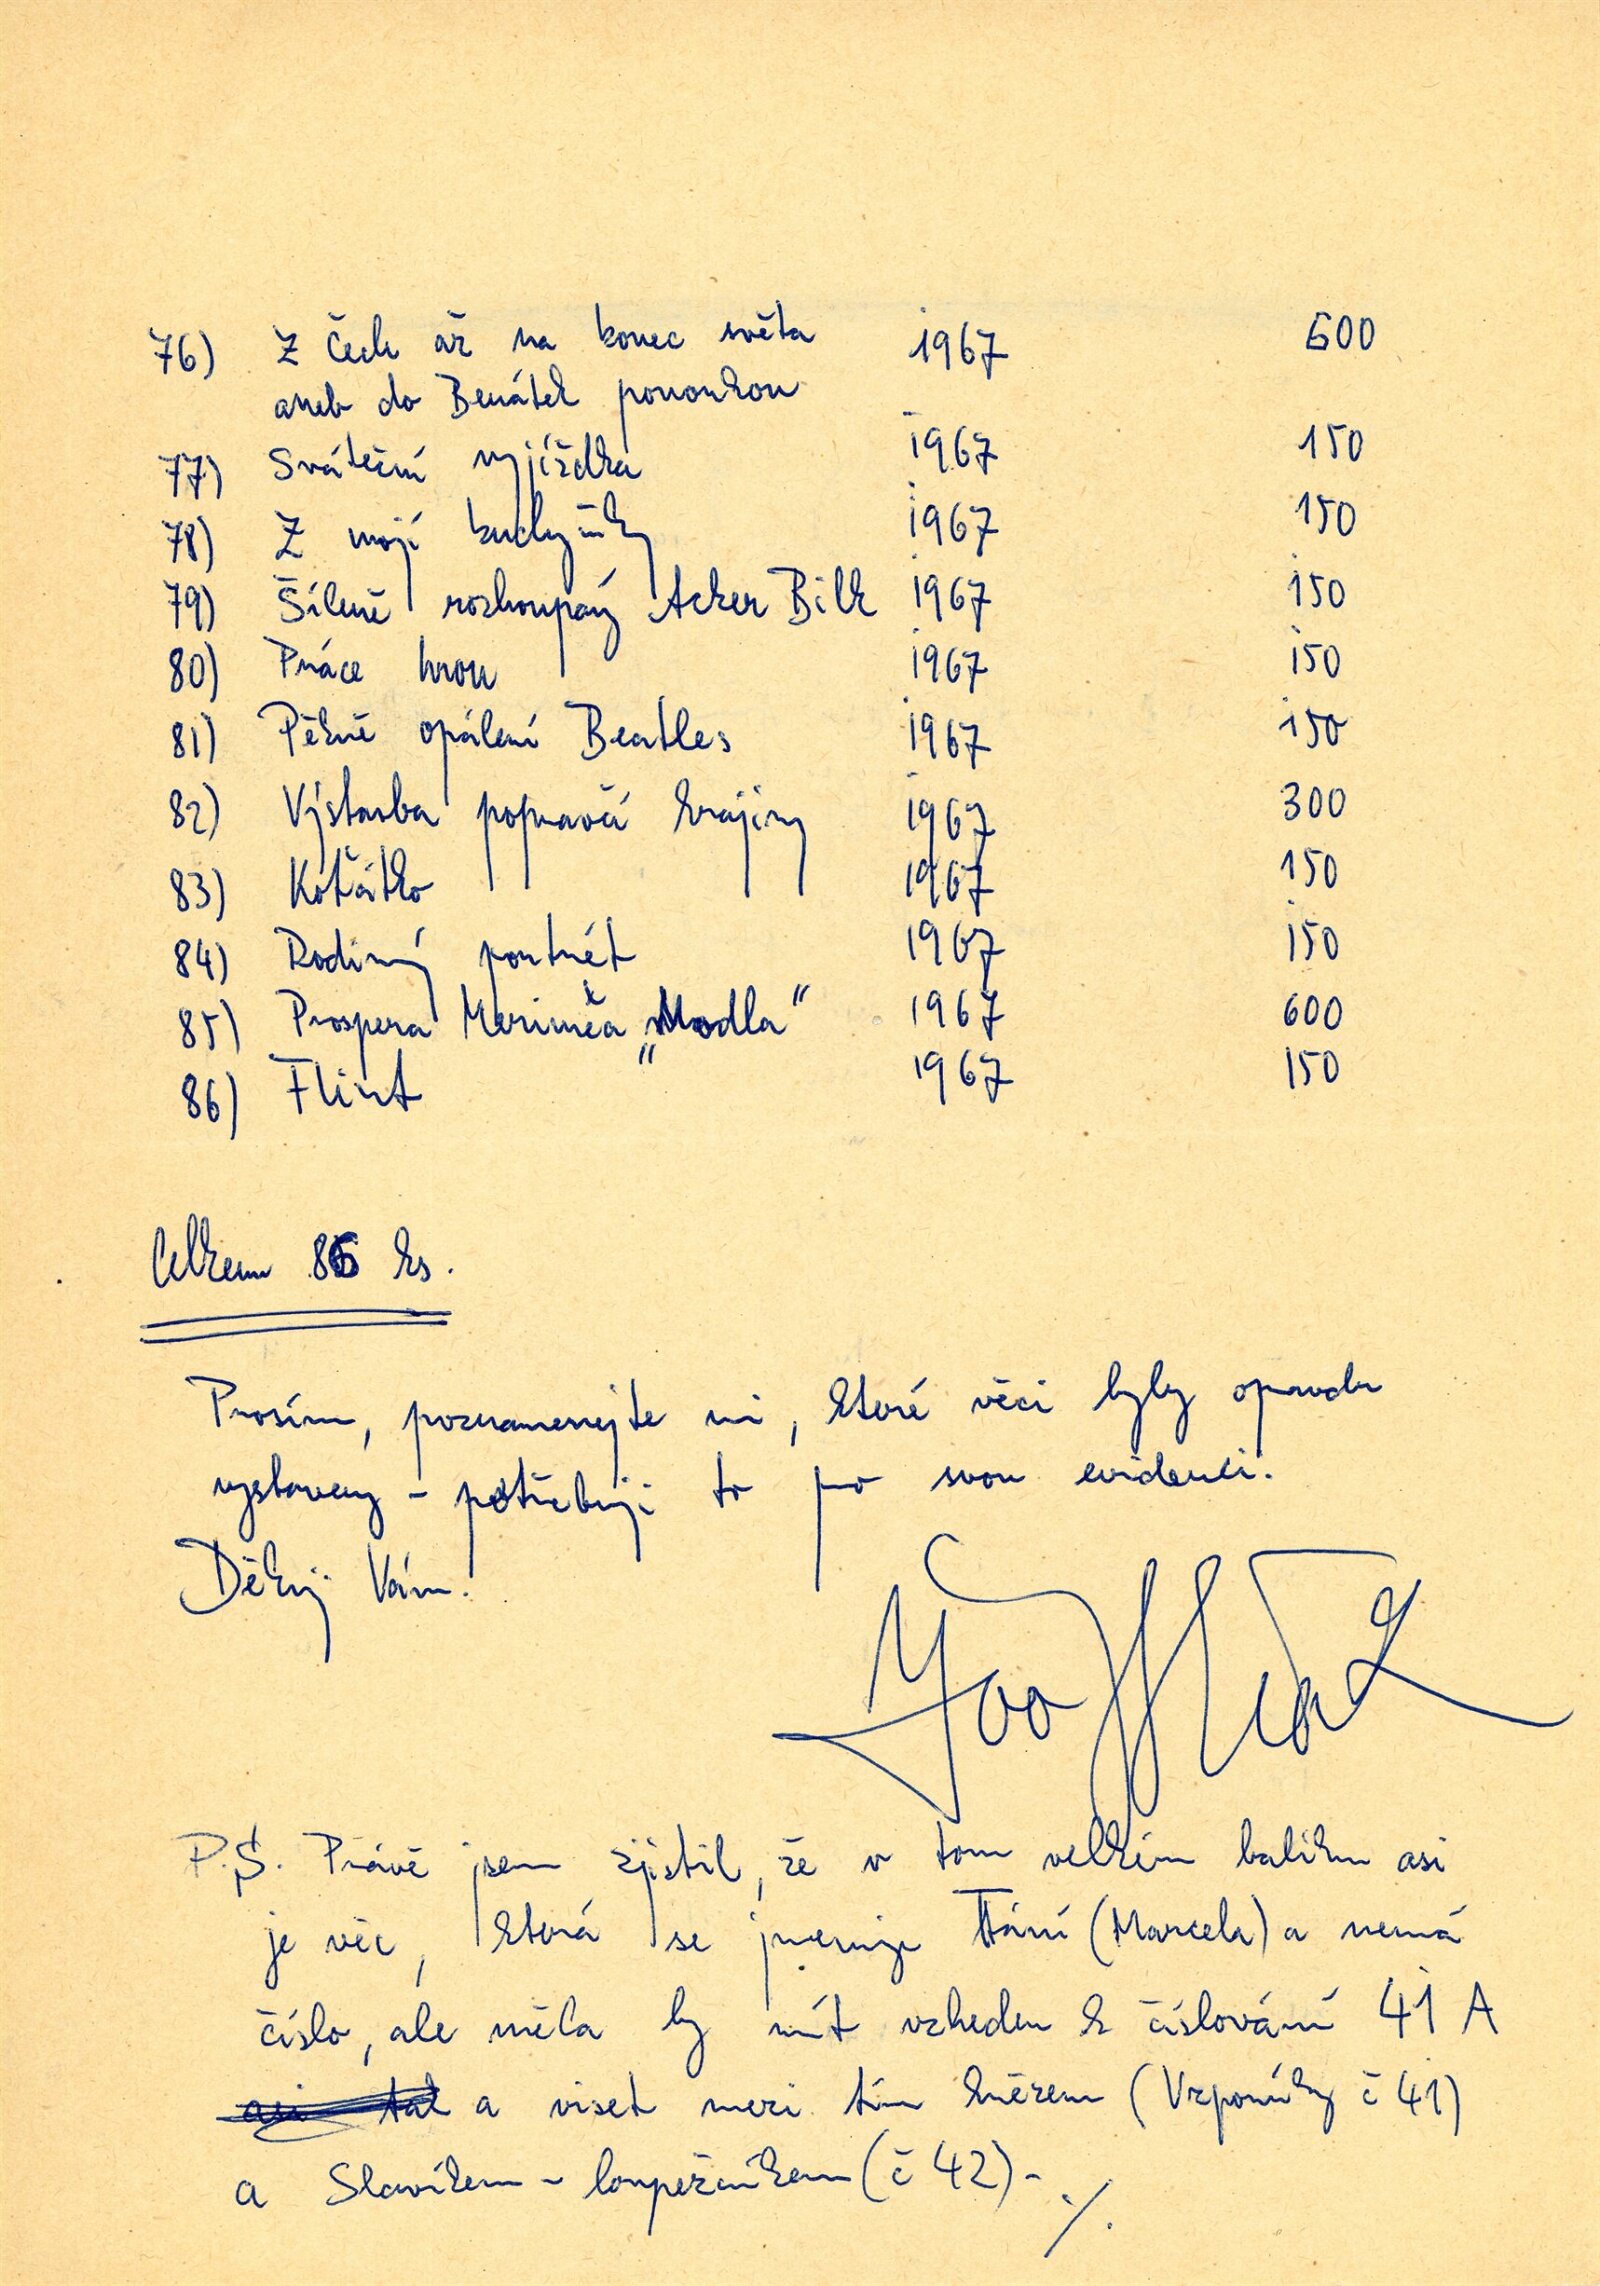 76) Z Čech až na konec světa 1967 600
aneb do Benátek ponorkou
77) Sváteční vyjížďka 1967 150
78) Z mojí kuchyňky 1967 150
79) Šíleně rozhoupaný Acker Bilk 1967 150
80) Práce hrou 1967 150
81) Pěkně opálení Beatles 1967 150
82) Výstavba popravčí krajiny 1967 300
83) Koťátko 1967 150
84) Rodinný portrét 1967 150
85) Prospera Meriméa „Modla“ 1967 600
86) Flint 1967 150
Celkem 86 ks.
Prosím, poznamenejte mi, které věci byly opravdu
vystaveny – potřebuji to pro svou evidenci.
Děkuji Vám.
P.S. Právě jsem zjistil, že v tom velkém balíku asi
je věc, která se jmenuje Tání (Marcela) a nemá
číslo, ale měla by mít vzhledem k číslování 41 A
asi tak a viset mezi tím knězem (Vzpomínky č 41)
a Slavíkem – loupežníkem (č 42) –
./.